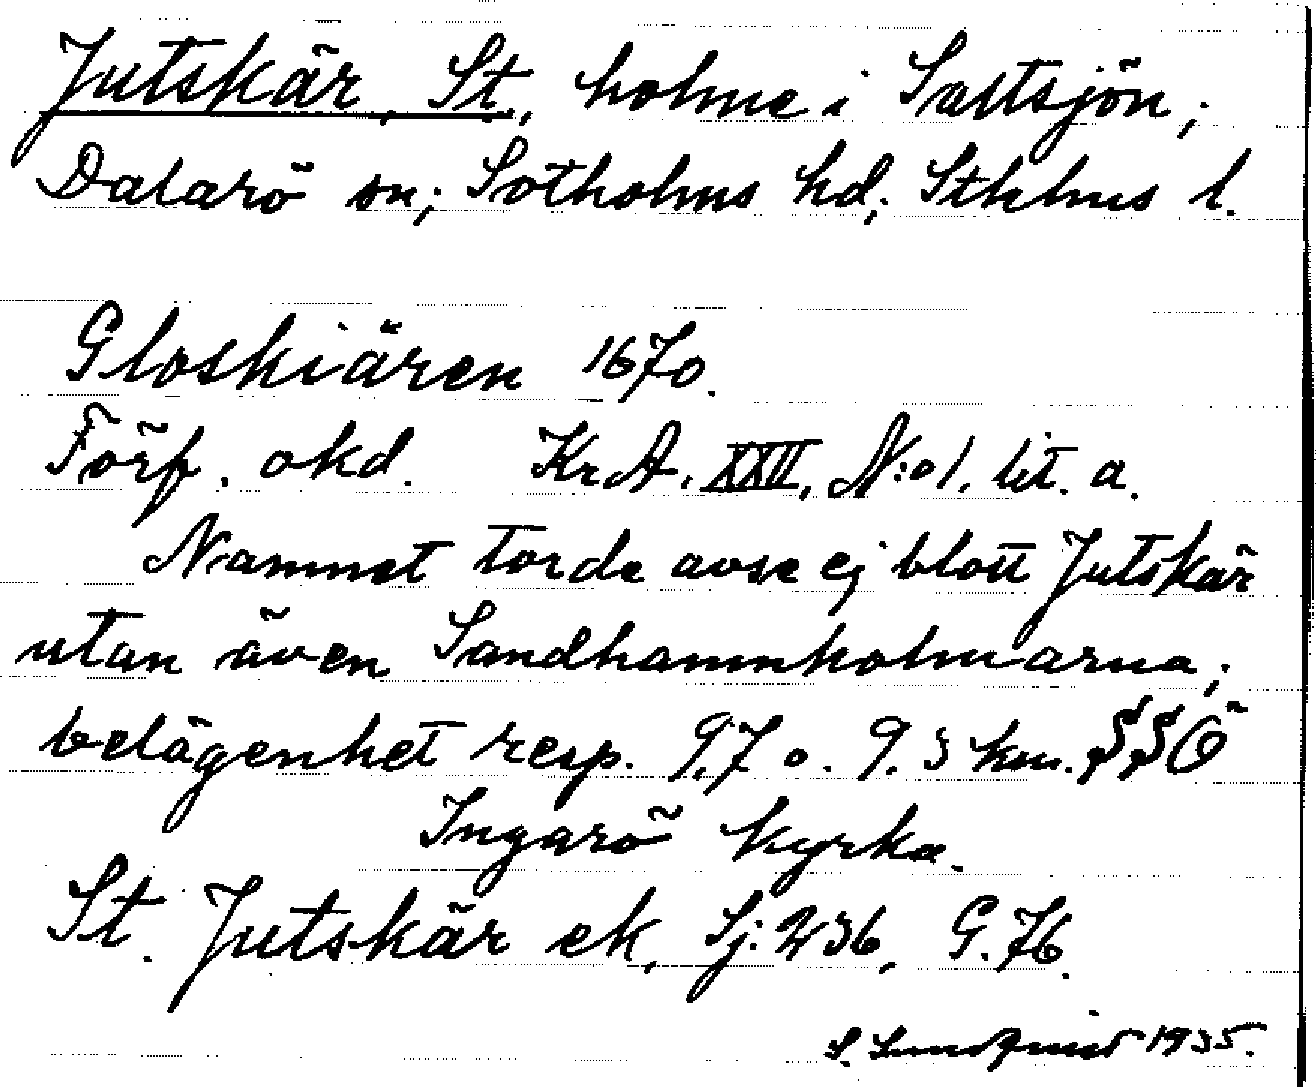 Jutskär, St., holme i Saltsjön,
Dalarö sn; Sotholms hd; Sthlms l.
Gloskiären 1670.
Förf. okd. Kr.A. XXII, N:o 1. lit. a.
Namnet torde avse ej blott Jutskär
utan även Sandhamnholmarna,
belägenhet resp. 9,7 o. 9.3 km. SSÖ
Ingarö kyrka.
St. Jutskär ek, Sj. 236, G. 76.
S. 1935.